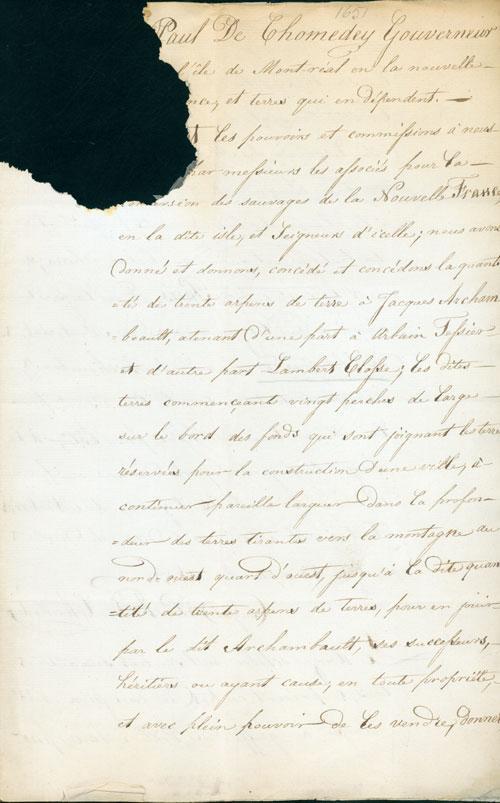 1651
Paul De Chomedey Gouverneur
l'île de Mont-réal en la nouvelle
et terres qui en dépendent. —
les pouvoirs et commissions à nous
par messieurs les associés pour la
des sauvages de la Nouvelle France
en la dite isle, et Seigneurs d'icelle; nous avons
donné et donnons, concédé et concédons la quanti
=té de trente arpens de terre à Jacques Archam
=beault, atenant d'une part à Urbain Tessier
et d'autre part Lambert Closse; les dites
terres commençants vingt perches de large
sur le bord des fonds qui sont joignant les terres
réservées pour la construction d'une ville, à
continuer pareille largeur dans la profon-
=deur des terres tirants vers la montagne au
nord ouest quart d'ouest, jusqu'à la dite quan
=tité de trente arpens de terres, pour en jouir
par le dit Archambault, ses successeurs,
héritiers ou ayant cause, en toute propriété,
et avec plein pouvoir de les vendre, donner